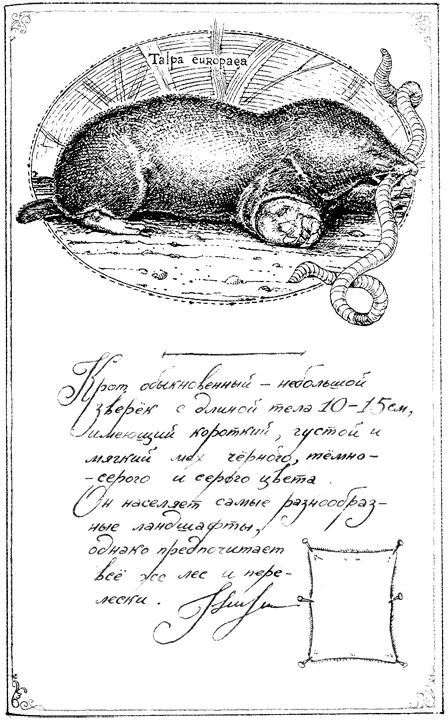 Talpa europaea
Крот обыкновенный – небольшой
зверёк с длиной тела 10–15см,
имеющий короткий, густой и
мягкий мех чёрного, тёмно-
-серого и серого цвета.
Он населяет самые разнообраз-
ные ландшафты,
однако предпочитает
всё же лес и пере-
лески.